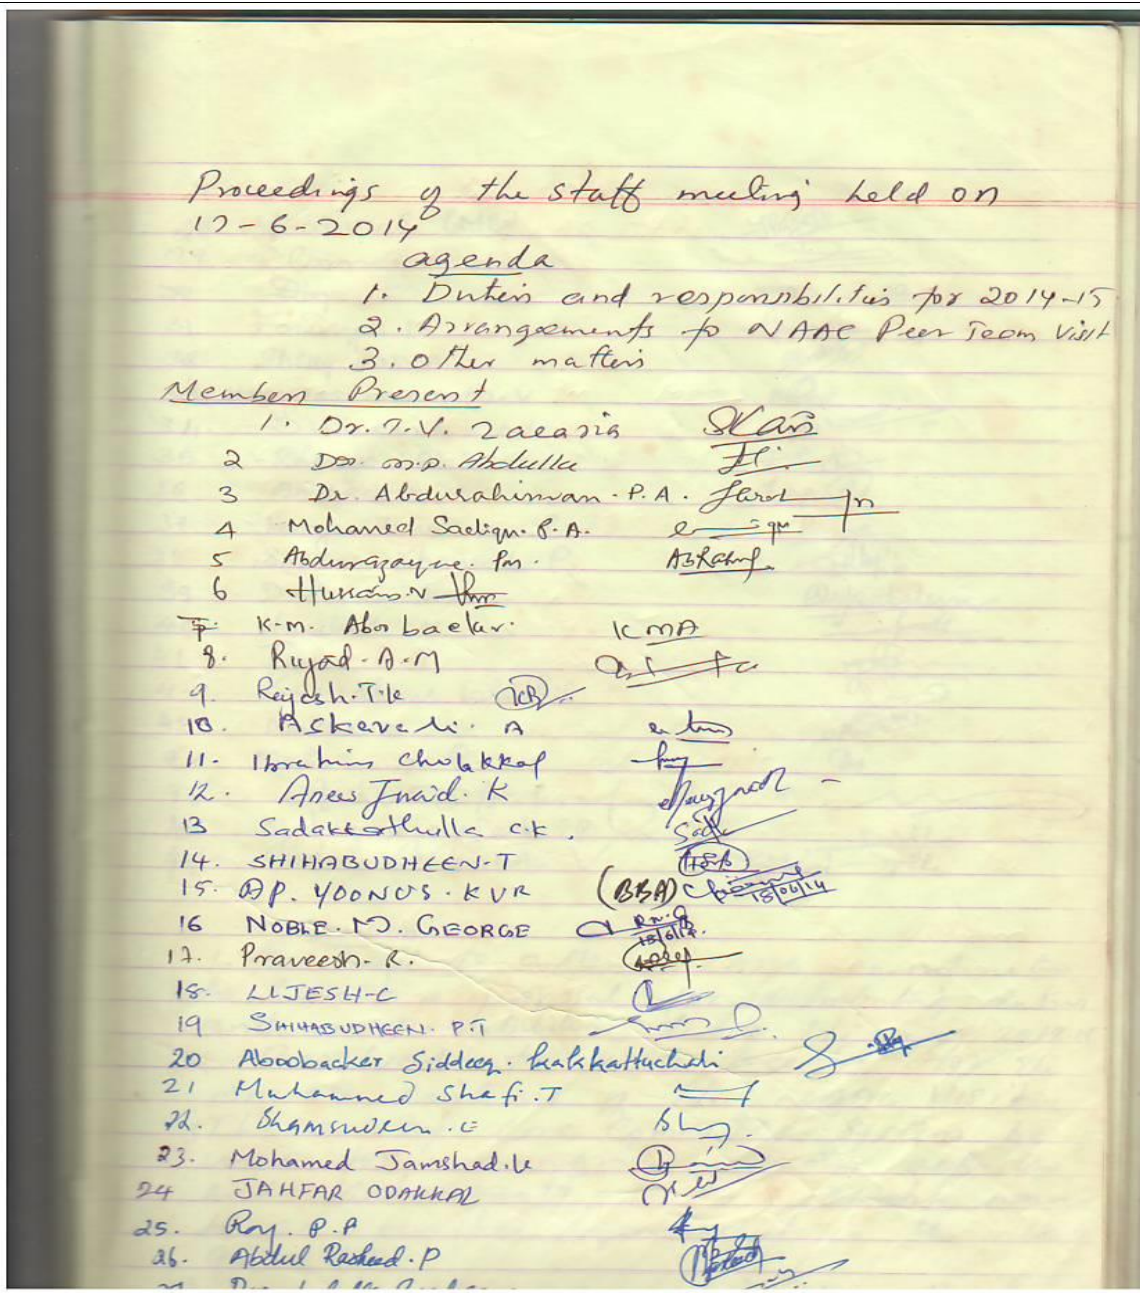 Proceedings of the staff meeting held on
17-6-2014
agenda
1. Duties and responsibilities for 2014-15
2. Arrangements to NAAC Peer Team Visit
3. Other matters
Members Present
1. Dr. T.V. Zacaria
2 Dr. M.P. Abdulla
3 Dr. Abdurahiman. P.A.
4 Mohamed Sadiqu. P.A.
5
6 Hussain. N
7. K.M. Aboobacker. KMA
8. Riyad. A. M
9. Rajesh. T.K
10. Askarali. A
11. Ibrahim Cholakkal
12. Anees Jnaid. K
13 Sadakkathulla C.K.
14. SHIHABUDHEEN-T
15. AP. YOONUS. KVR (BBA) 18/06/14
16 NOBLE. M. GEORGE
17. Praveesh. R.
18. LIJESH-C
19 SHIHABUDHEEN. P.T
20 Aboobacker Siddeeq. Kakkattuchali
21 Muhammed Shafi. T
22. Shamsudeen. E
23. Mohamed Jamshad. K
24 JAHFAR ODAKKAL
25. Roy. P.P
26. Abdul Rasheed. P